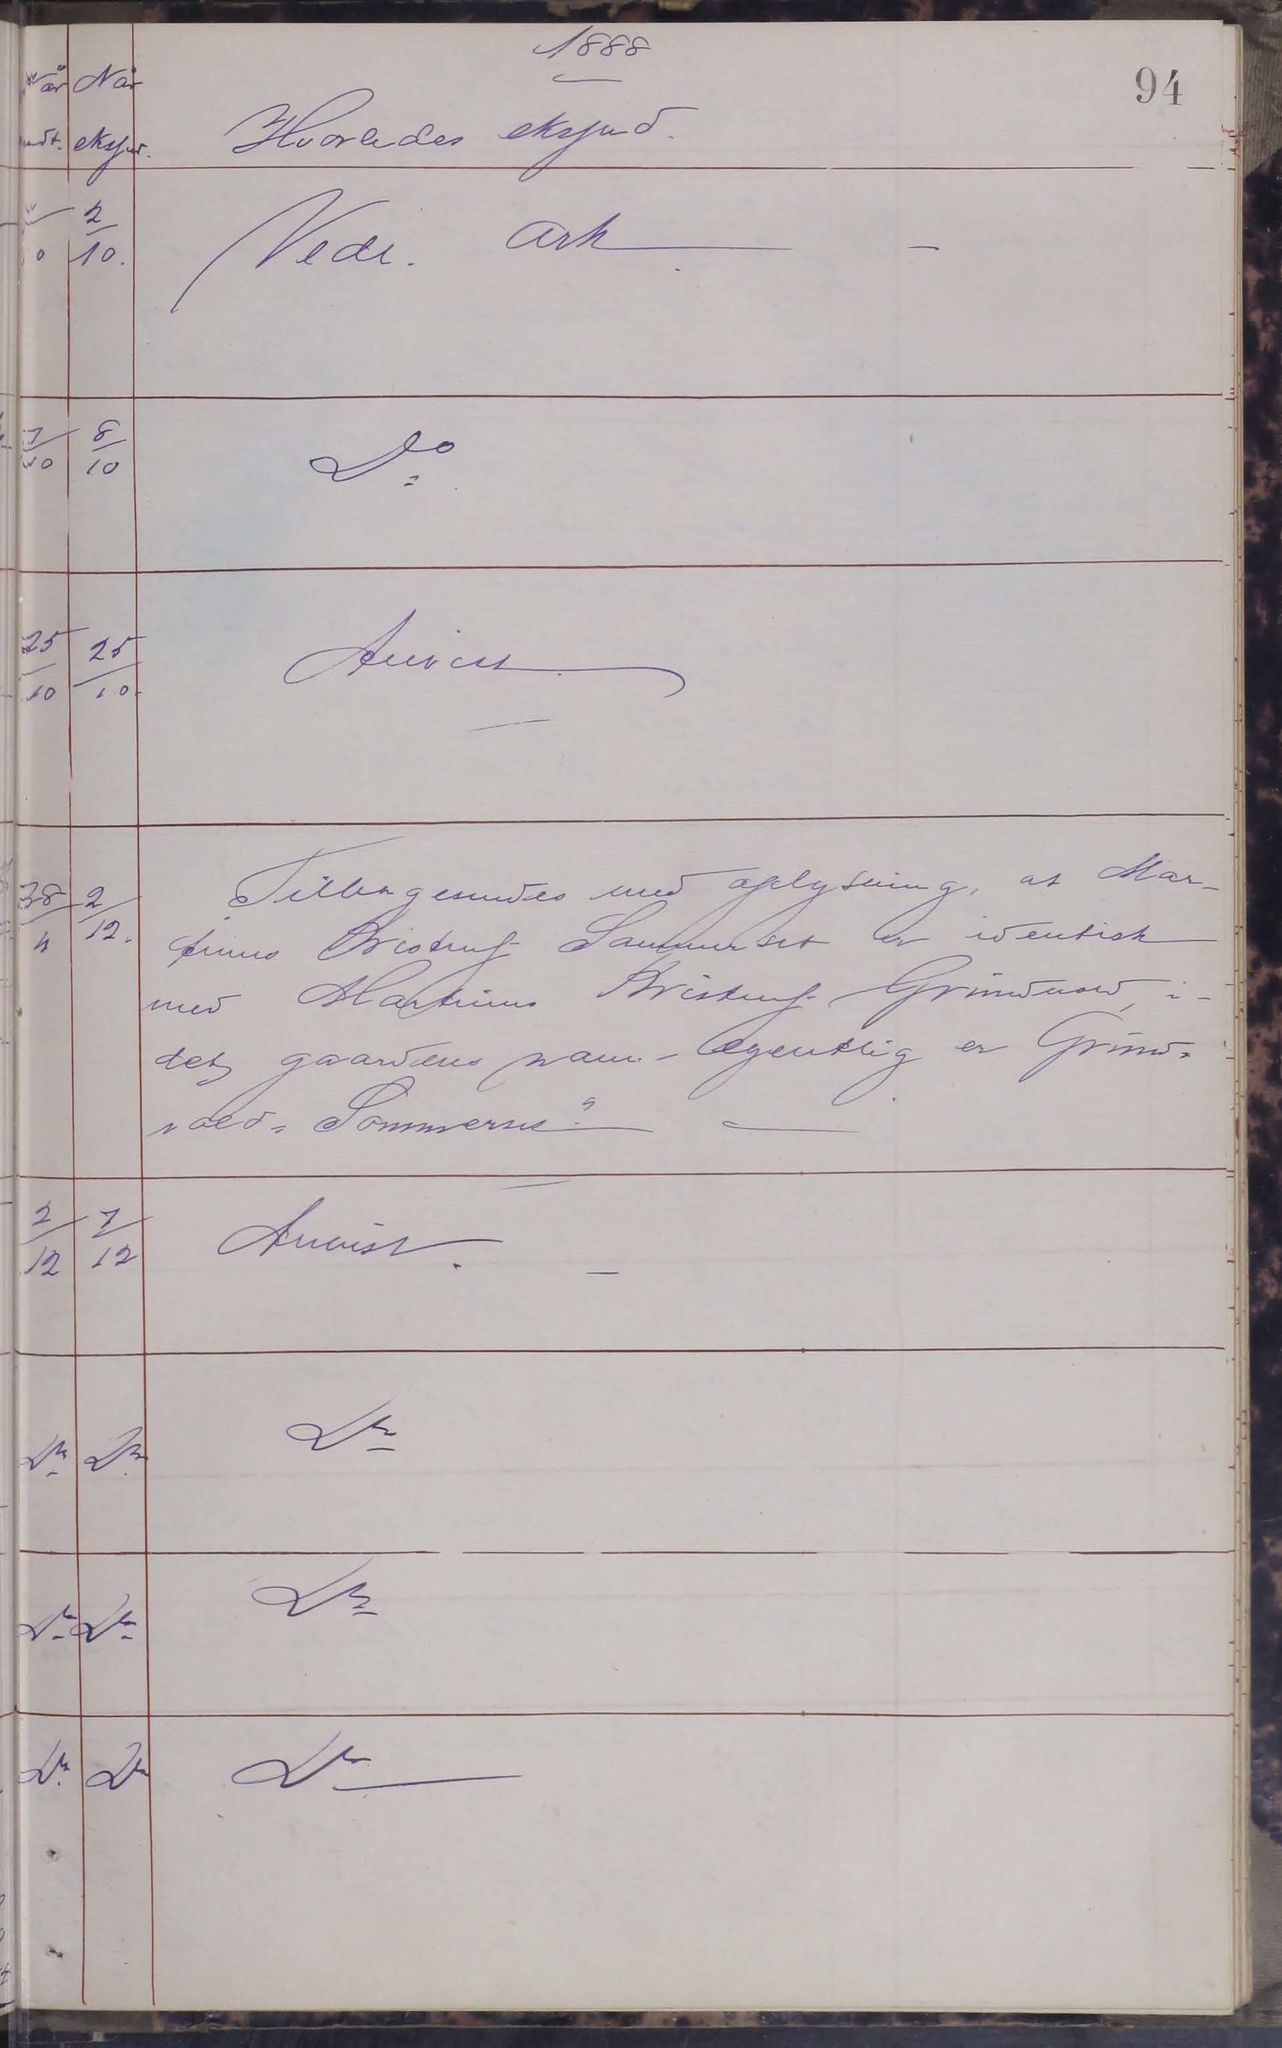 1888
94
Når
Når
indt.
ekspd.
Hvorledes ekspd.
10
2/10.
Vedl. ark
7/10
8/10
Do
25/10
25/10
Anvist
28/11
2/12.
Tilbagesendes med oplysning, at Mar-
tinus Kristens. Sommerset er identisk
med Martinus Kristens. Grindvold, i-
det gaardens navn egentlig er "Grind-
vold-Sommerset"
2/12
7/12
Anvist.
Do
Do
Do
Do
Do
Do
Do
Do
Do